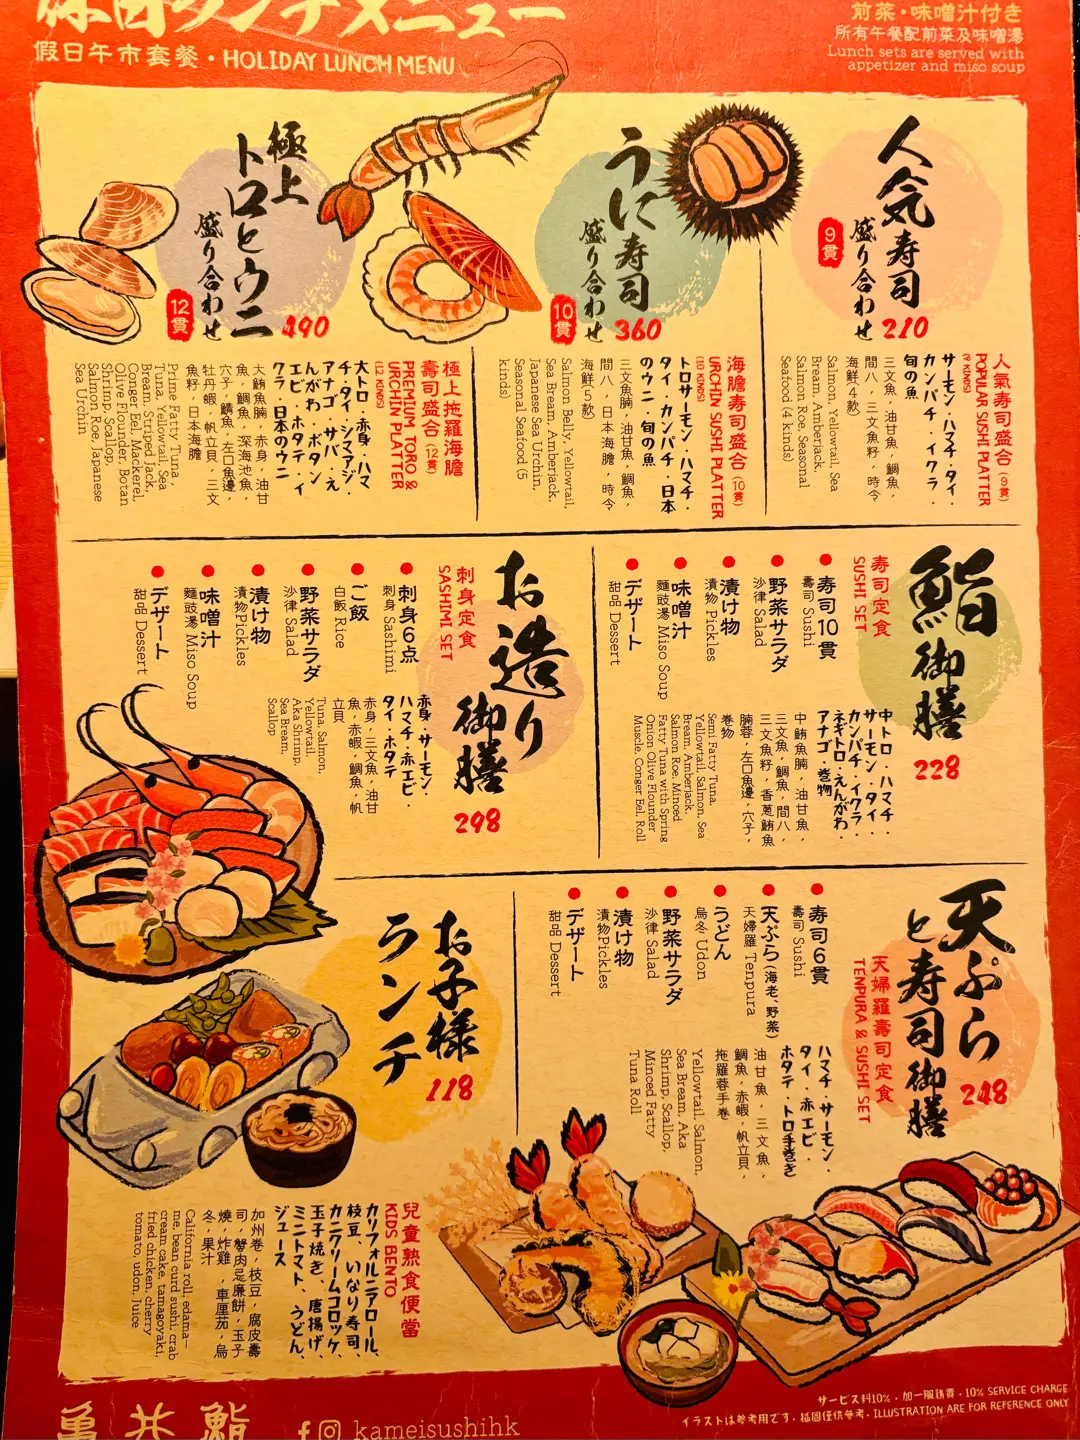 休日ランチメニュー
假日午市套餐・HOLIDAY LUNCH MENU
前菜・味噌汁付き
所有午餐配前菜及味噌湯
Lunch sets are served with
appetizer and miso soup
人気寿司
盛り合わせ
9貫
210
人氣壽司盛合(9貫)
POPULAR SUSHI PLATTER
(9 KINDS)
サーモン・ハマチ・タイ・
カンパチ・イクラ・
旬の魚
三文魚，油甘魚，鯛魚，
間八，三文魚籽，時令
海鮮(4款)
Salmon, Yellowtail, Sea
Bream, Amberjack,
Salmon Roe, Seasonal
Seafood (4 kinds)
うに寿司
盛り合わせ
10貫
360
海膽壽司盛合(10貫)
URCHIN SUSHI PLATTER
(10 KINDS)
トロサーモン・ハマチ・
タイ・カンパチ・日本
のウニ・旬の魚
三文魚腩，油甘魚，鯛魚，
間八，日本海膽，時令
海鮮(5款)
Salmon Belly, Yellowtail,
Sea Bream, Amberjack,
Japanese Sea Urchin,
Seasonal Seafood (5
kinds)
極上
トロとウニ
盛り合わせ
12貫
490
極上拖羅海膽
壽司盛合(12貫)
PREMIUM TORO &
URCHIN PLATTER
(12 KINDS)
大トロ・赤身・ハマ
チ・タイ・シマアジ・
アナゴ・サバ・え
んがわ・ボタン
エビ・ホタテ・イ
クラ・日本のウニ
大鮪魚腩，赤身，油甘
魚，鯛魚，深海池魚，
穴子，鯖魚，左口魚邊，
牡丹蝦，帆立貝，三文
魚籽，日本海膽
Prime Fatty Tuna,
Tuna, Yellowtail, Sea
Bream, Striped Jack,
Conger Eel, Mackerel,
Olive Flounder, Botan
Shrimp, Scallop,
Salmon Roe, Japanese
Sea Urchin
鮨御膳
228
寿司定食
SUSHI SET
寿司10貫
壽司 Sushi
野菜サラダ
沙律 Salad
漬け物
漬物 Pickles
味噌汁
麵豉湯 Miso Soup
デザート
甜品 Dessert
中トロ・ハマチ・
サーモン・タイ・
カンパチ・イクラ・
ネギトロ・えんがわ・
アナゴ・巻物
中鮪魚腩，油甘魚，
三文魚，鯛魚，間八，
三文魚籽，香蔥鮪魚
腩蓉，左口魚邊，穴子，
巻物
Semi Fatty Tuna,
Yellowtail, Salmon, Sea
Bream, Amberjack,
Salmon Roe, Minced
Fatty Tuna with Spring
Onion Olive Flounder
Muscle, Conger Eel, Roll
お造り御膳
298
刺身定食
SASHIMI SET
刺身6点
刺身 Sashimi
ご飯
白飯 Rice
野菜サラダ
沙律 Salad
漬け物
漬物Pickles
味噌汁
麵豉湯 Miso Soup
デザート
甜品 Dessert
赤身・サーモン・
ハマチ・赤エビ・
タイ・ホタテ
赤身，三文魚，油甘
魚，赤蝦，鯛魚，帆
立貝
Tuna, Salmon,
Yellowtail,
Aka Shrimp,
Sea Bream,
Scallop
天ぷら
と寿司御膳
248
天婦羅壽司定食
TENPURA & SUSHI SET
寿司6貫
壽司 Sushi
天ぷら(海老、野菜)
天婦羅 Tenpura
うどん
烏冬 Udon
野菜サラダ
沙律 Salad
漬け物
漬物Pickles
デザート
甜品 Dessert
ハマチ・サーモン・
タイ・赤エビ・
ホタテ・トロ手巻き
油甘魚，三文魚，
鯛魚，赤蝦，帆立貝，
拖羅蓉手巻
Yellowtail, Salmon,
Sea Bream, Aka
Shrimp, Scallop,
Minced Fatty
Tuna Roll
お子様
ランチ
118
兒童熟食便當
KIDS BENTO
カリフォルニアロール、
枝豆、いなり寿司、
カニクリームコロッケ、
玉子焼き、唐揚げ、
ミニトマト、うどん、
ジュース
加州卷，枝豆，腐皮壽
司，蟹肉忌廉餅，玉子
燒，炸雞，車厘茄，烏
冬，果汁
California roll, edama-
me, bean curd sushi, crab
cream cake, tamagoyaki,
fried chicken, cherry
tomato, udon, Juice
サービス料10%・加一服務費・10% SERVICE CHARGE
イラストは参考用です・插圖僅供參考・ILLUSTRATION ARE FOR REFERENCE ONLY
亀井鮨
kameisushihk